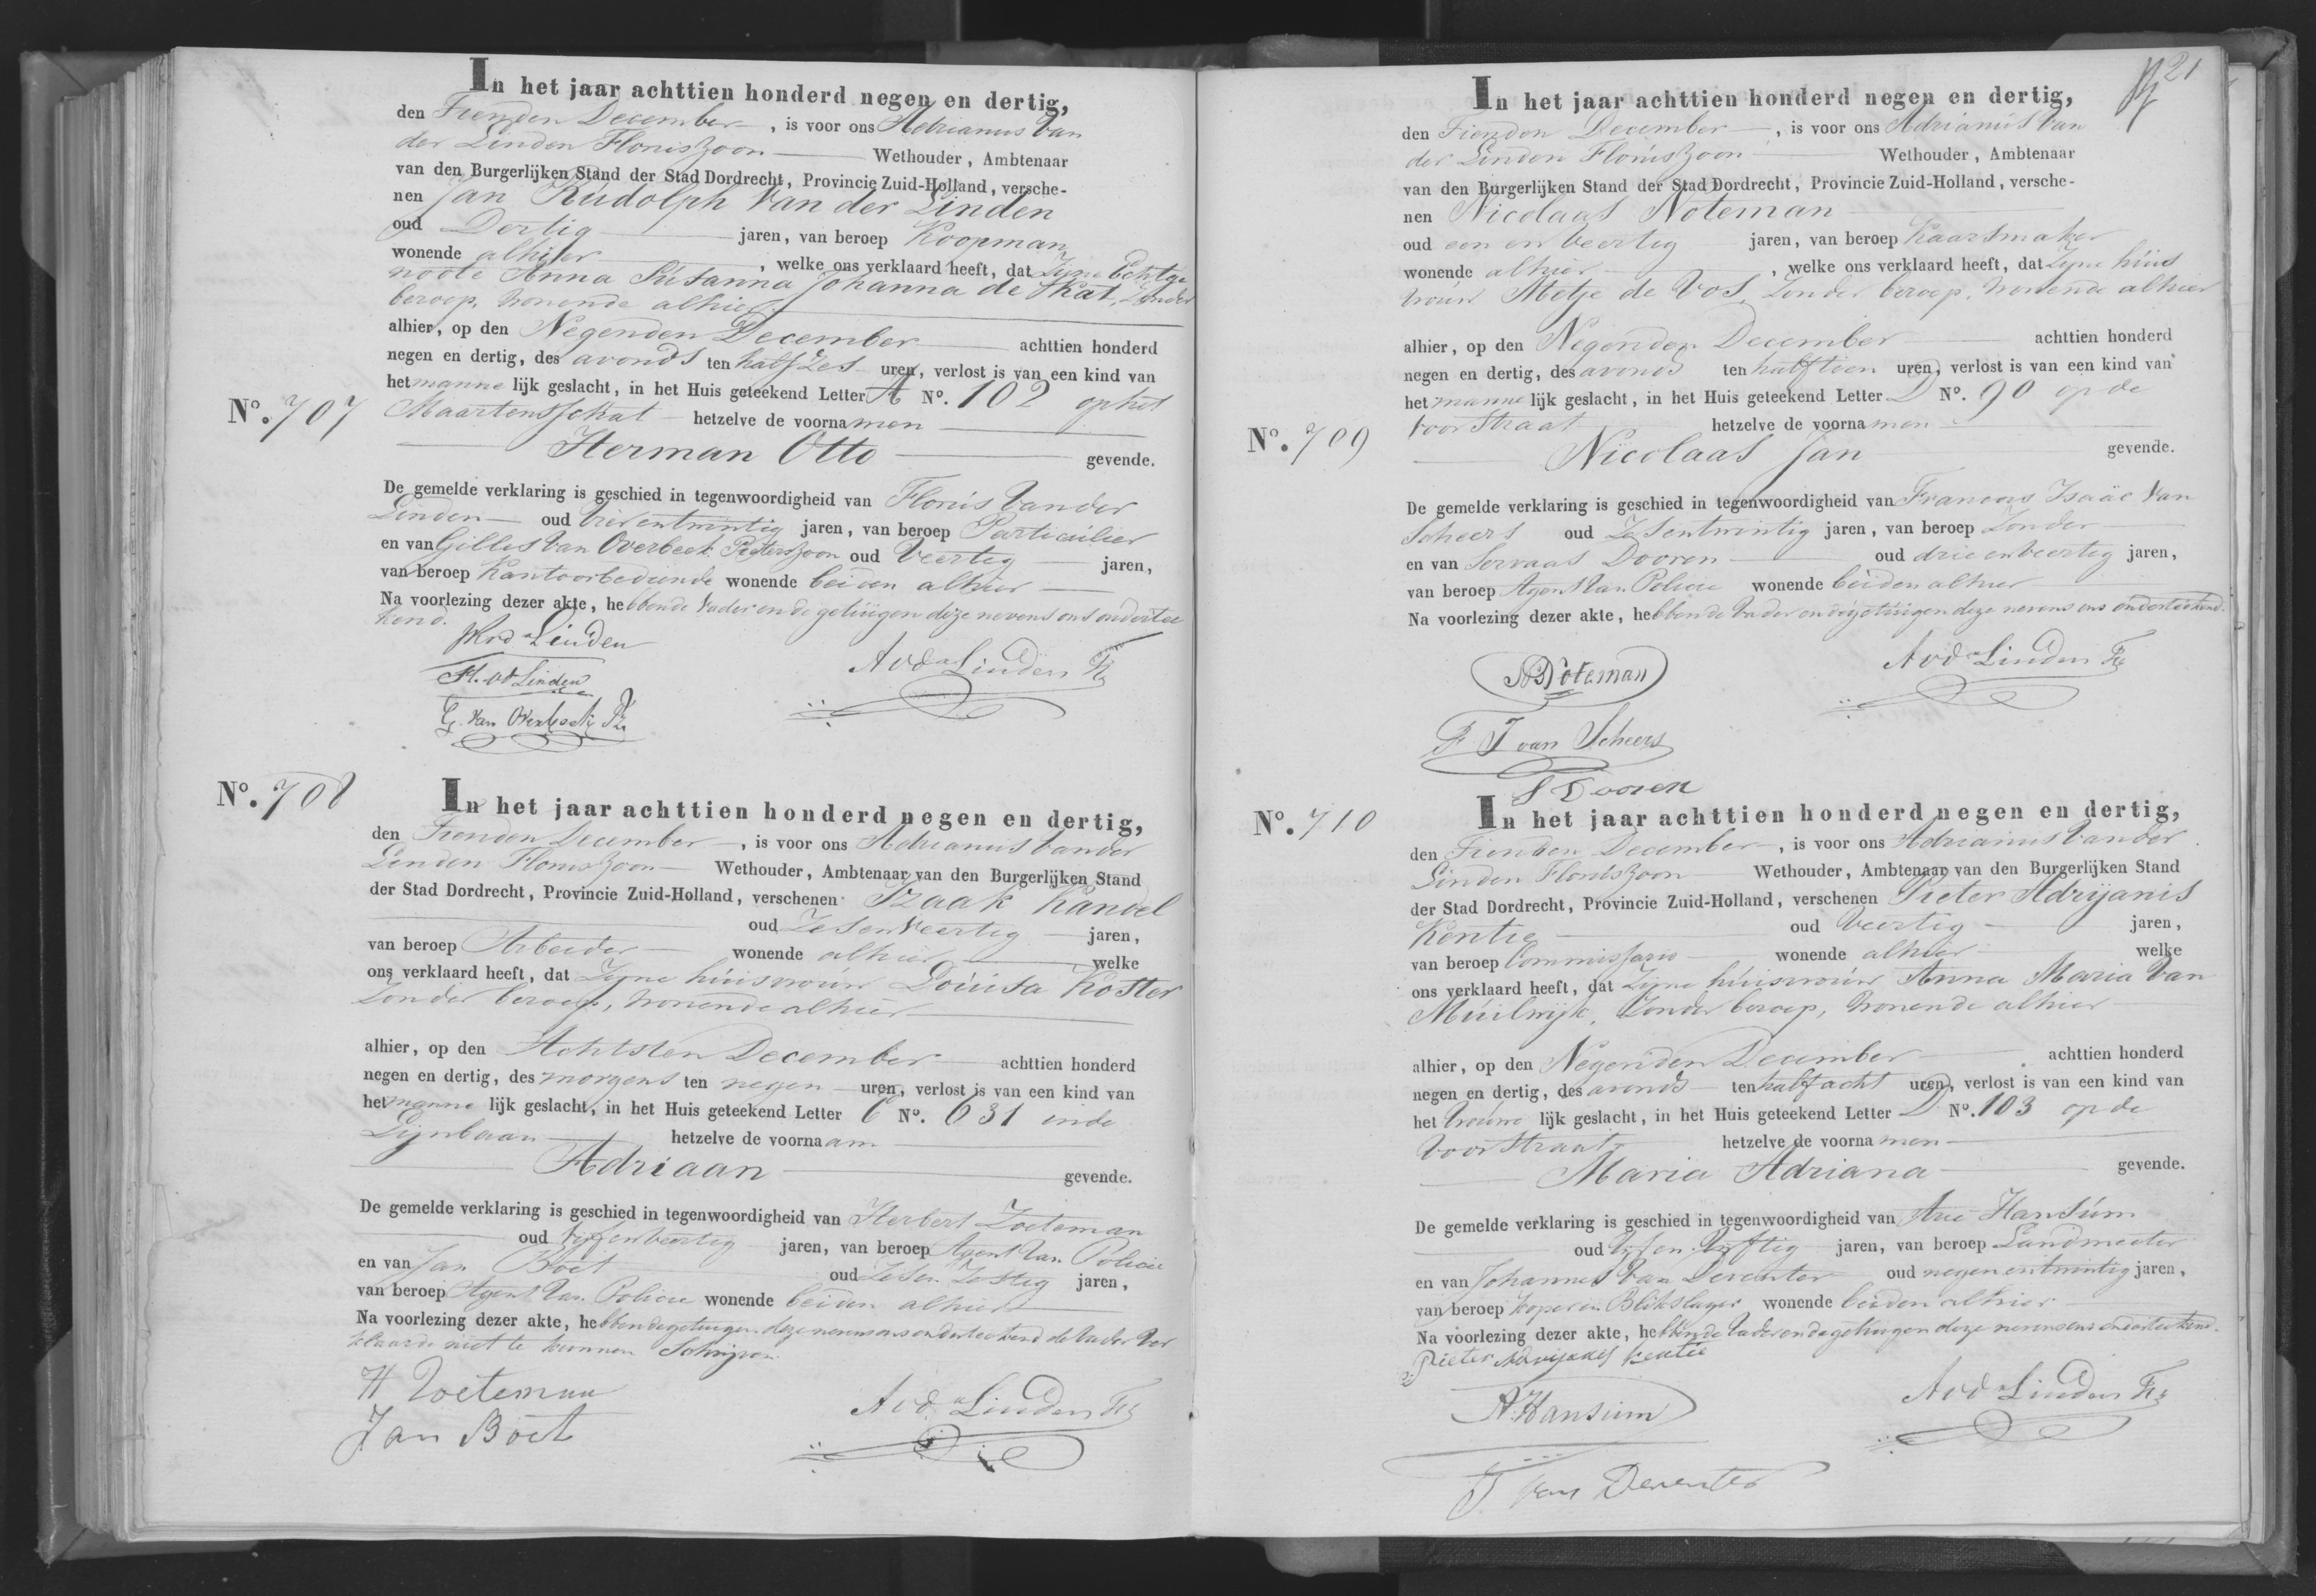 In het jaar achttien honderd negen en dertig,
den Tienden December, is voor ons Adrianus Van
der Linden Floriszoon Wethouder, Ambtenaar
van den Burgerlijken Stand der Stad Dordrecht, Provincie Zuid-Holland, versche-
nen Jan Rudolph Van der Linden
oud Dertig jaren, van beroep Koopman
wonende alhier, welke ons verklaard heeft, dat Zijne Echtge
noote Anna Susanna Johanna de Kat, Zonder
beroep, Wonende alhier
alhier, op den Negenden December achttien honderd
negen en dertig, des avonds ten half Zes uren, verlost is van een kind van
het mannelijk geslacht, in het Huis geteekend Letter A No. 102 op het
No. 707
Maartensschat hetzelve de voornamen
Herman Otto gevende.
De gemelde verklaring is geschied in tegenwoordigheid van Floris Van der
Linden oud Vierentwintig jaren, van beroep Particulier
en van Gilles Van Overbeek Pieterszoon oud Veertig jaren,
van beroep Kantoorbediende wonende beiden alhier
Na voorlezing dezer akte, hebbende Vader en de getuigen deze nevens ons ondertee
kend.
JRvd Linden
Fl. vd Linden
G. van Overbeek Pz
A vd Linden Fz
No. 708
In het jaar achttien honderd negen en dertig,
den Tienden December, is voor ons Adrianus Van der
Linden Floriszoon Wethouder, Ambtenaar van den Burgerlijken Stand
der Stad Dordrecht, Provincie Zuid-Holland, verschenen Izaak Kandel
oud Zesenveertig jaren,
van beroep Arbeider wonende alhier welke
ons verklaard heeft, dat Zijne huisvrouw Louisa Koster
Zonder beroep, Wonende alhier
alhier, op den Achtsten December achttien honderd
negen en dertig, des morgens ten negen uren, verlost is van een kind van
het mannelijk geslacht, in het Huis geteekend Letter C No. 631 in de
Lijnbaan hetzelve de voornaam
Adriaan gevende.
De gemelde verklaring is geschied in tegenwoordigheid van Herbert Zoeteman
oud Vijfenveertig jaren, van beroep Agent Van Policie
en van Jan Boet oud Zesen Zestig jaren,
van beroep Agent Van Policie wonende beiden alhier
Na voorlezing dezer akte, hebben de getuigen deze nevens ons onderteekend de Vader Ver
klaarde niet te kunnen Schrijven
H Zoeteman
Jan Boet
A vd Linden Fz
21
In het jaar achttien honderd negen en dertig,
den Tienden December, is voor ons Adrianus Van
der Linden Floriszoon Wethouder, Ambtenaar
van den Burgerlijken Stand der Stad Dordrecht, Provincie Zuid-Holland, versche-
nen Nicolaas Noteman
oud een en Veertig jaren, van beroep Kaarsmaker
wonende alhier, welke ons verklaard heeft, dat Zijne huis
vrouw Metje de Vos, Zonder beroep, Wonende alhier
alhier, op den Negenden December achttien honderd
negen en dertig, des avonds ten half tien uren, verlost is van een kind van
het mannelijk geslacht, in het Huis geteekend Letter D No. 90 op de
No. 709
Voorstraat hetzelve de voornamen
Nicolaas Jan gevende.
De gemelde verklaring is geschied in tegenwoordigheid van Francois Isaäc Van
Scheers oud Zesentwintig jaren, van beroep Zonder
en van Servaas Dooren oud drie en Veertig jaren,
van beroep Agent Van Policie wonende beiden alhier
Na voorlezing dezer akte, hebbende Vader en de getuigen deze nevens ons onderteekend.
N Noteman
F I van Scheers
S Dooren
A vd Linden Fz
No. 710
In het jaar achttien honderd negen en dertig,
den Tienden December, is voor ons Adrianus Van der
Linden Floriszoon Wethouder, Ambtenaar van den Burgerlijken Stand
der Stad Dordrecht, Provincie Zuid-Holland, verschenen Pieter Adrijanis
Kentie oud Veertig jaren,
van beroep Commissaris wonende alhier welke
ons verklaard heeft, dat Zijne huisvrouw Anna Maria Van
Muilwijk, Zonder beroep, Wonende alhier
alhier, op den Negenden December achttien honderd
negen en dertig, des avonds ten half acht uren, verlost is van een kind van
het Vrouwelijk geslacht, in het Huis geteekend Letter D No. 103 op de
Voorstraat hetzelve de voornamen
Maria Adriana gevende.
De gemelde verklaring is geschied in tegenwoordigheid van Arie Hansum
oud Vijf en Vijftig jaren, van beroep Landmeeter
en van Johannes Van Deventer oud negenentwintig jaren,
van beroep Koper en Blikslager wonende beiden alhier
Na voorlezing dezer akte, hebbende Vader en de getuigen deze nevens ons onderteekend.
Pieter Adrijanis Kentie
A. Hansum
J van Deventer
A vd Linden Fz